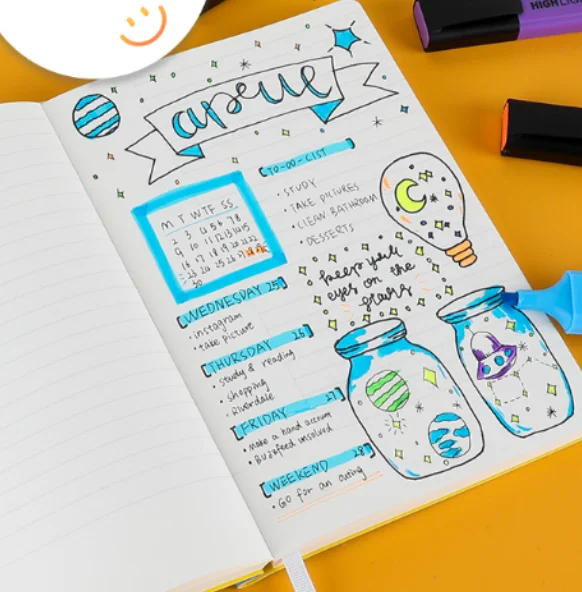 HIGHLIG
apeue
TO-DO-LIST
• STUDY
• TAKE PICTURES
• CLEAN BATHROOM
• DESSERTS
M T W T F S S
2 3 4 5 6 7 8
9 10 11 12 13 14 15
16 17 18 19 20 21 22
23 24 25 26 27 28 29
30
keep your
eyes on the
stars
WEDNESDAY 25
• instagram
• take picture
THURSDAY 26
• study & reading
• shopping
• Riverdale
FRIDAY 27
• Make a hand account
• Buzzfeed unsolved
WEEKEND 28
• GO for an outing